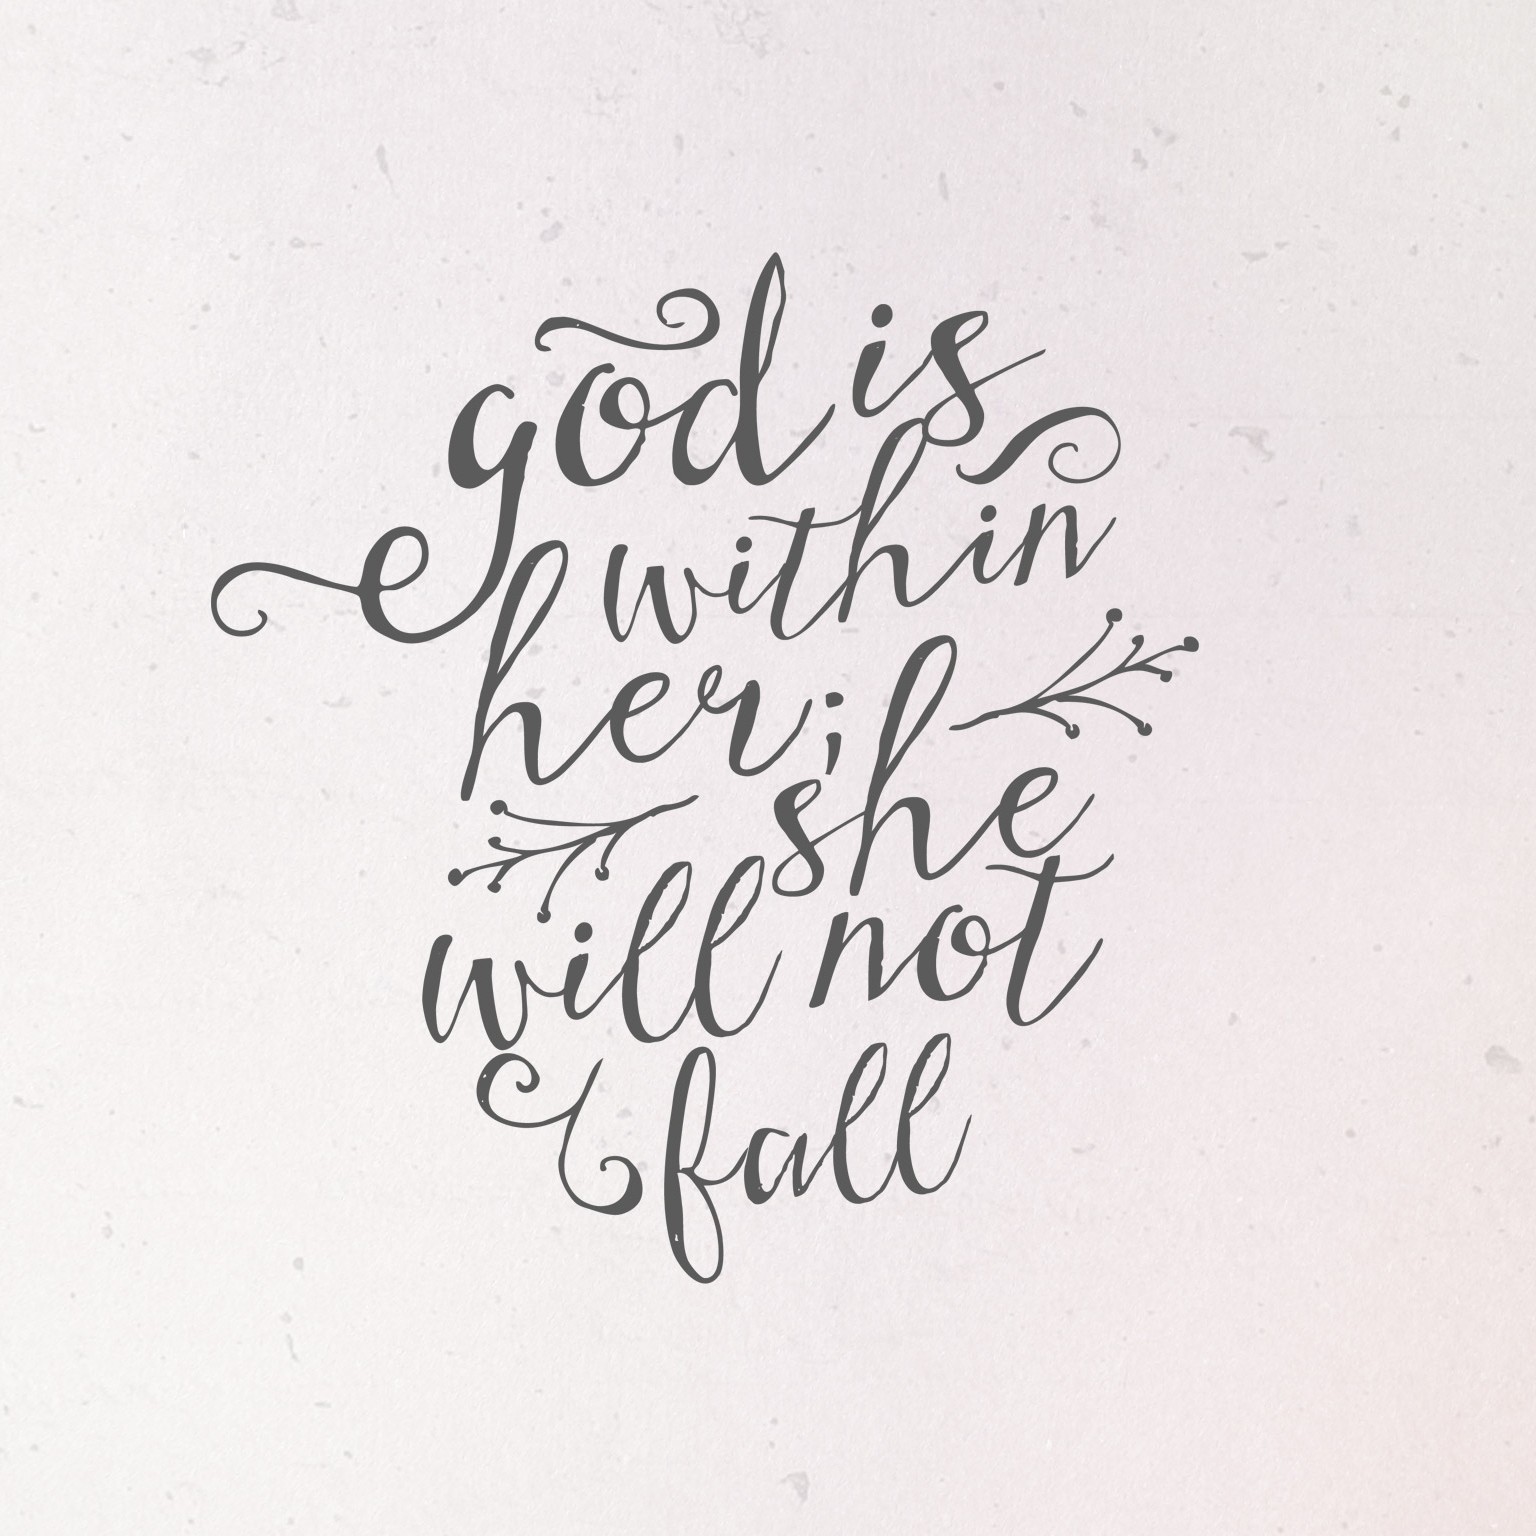 god is
within
her; she
will not
fall